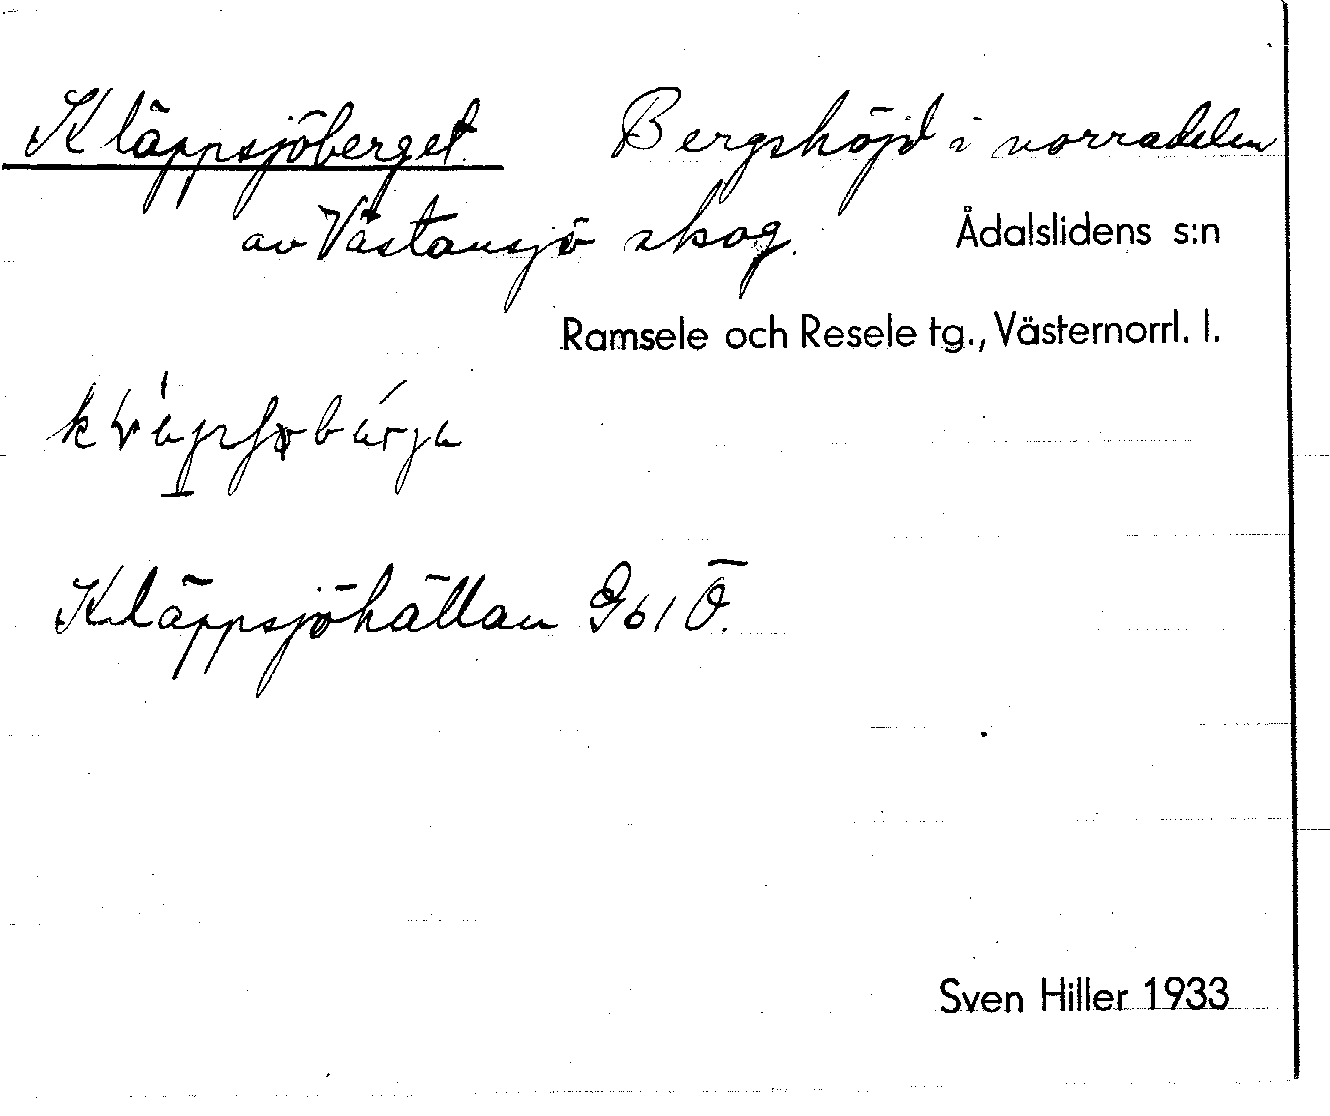 Kläppsjöberget. Bergshöjd i norradelen
av Västansjö skog. Ådalslidens s:n
Ramsele och Resele tg., Västernorrl. l.
Kläppsjöhällan G61 Ö.
Sven Hiller 1933